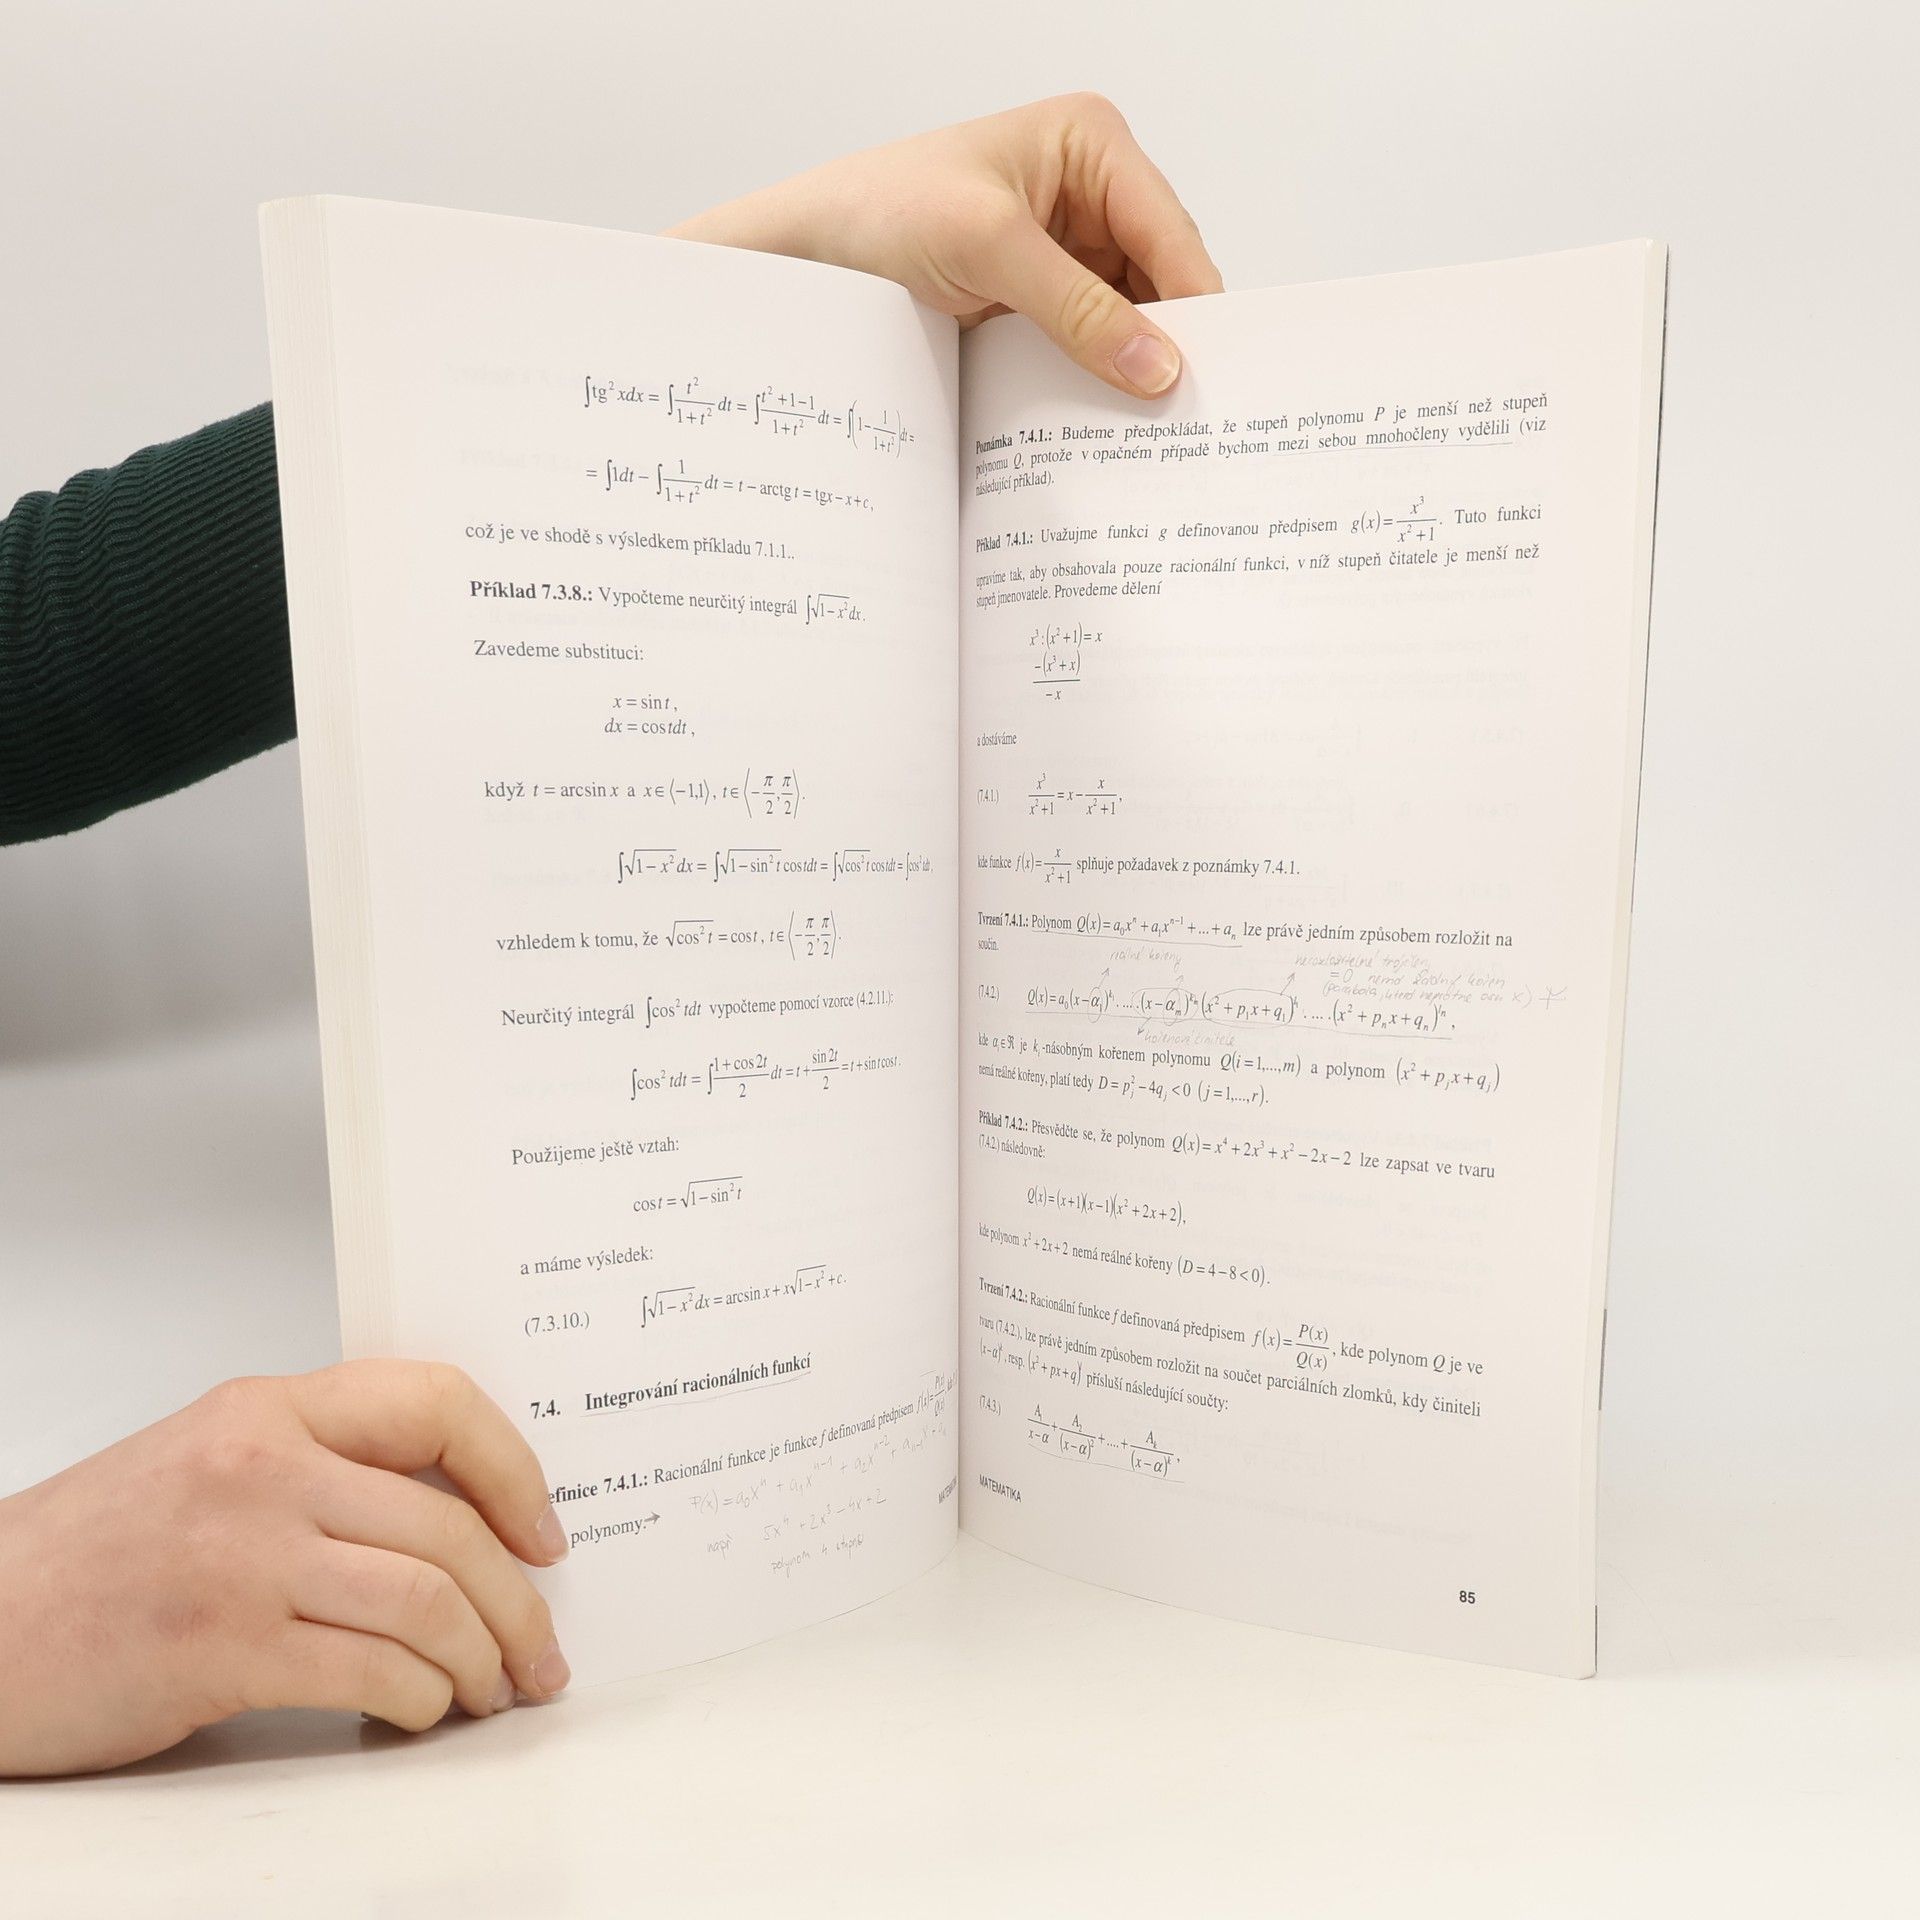 ∫tg² xdx = ∫ t²/(1+t²) dt = ∫ (t²+1−1)/(1+t²) dt = ∫(1− 1/(1+t²))dt =
= ∫1dt − ∫ 1/(1+t²) dt = t − arctg t = tgx − x + c,
což je ve shodě s výsledkem příkladu 7.1.1..
Příklad 7.3.8.: Vypočteme neurčitý integrál ∫√(1−x²)dx.
Zavedeme substituci:
x = sin t,
dx = cos tdt,
když t = arcsin x a x∈⟨−1,1⟩, t∈⟨−π/2, π/2⟩.
∫√(1−x²) dx = ∫√(1−sin² t) cos tdt = ∫√(cos² t) cos tdt = ∫cos² tdt,
vzhledem k tomu, že √(cos² t) = cos t, t∈⟨−π/2, π/2⟩.
Neurčitý integrál ∫cos² tdt vypočteme pomocí vzorce (4.2.11.):
∫cos² tdt = ∫ (1+cos 2t)/2 dt = t + sin 2t/2 = t + sin t cos t.
Použijeme ještě vztah:
cos t = √(1−sin² t)
a máme výsledek:
(7.3.10.) ∫√(1−x²) dx = arcsin x + x√(1−x²) + c.
7.4. Integrování racionálních funkcí
efinice 7.4.1.: Racionální funkce je funkce f definovaná předpisem f(x)= P(x)/Q(x),
polynomy.→ P(x) = a₀xⁿ + a₁xⁿ⁻¹ + a₂xⁿ⁻² + aₙ₋₁x + aₙ
např 5x⁴ + 2x³ − 4x + 2
polynom 4 stupně
MATEMATIKA
Poznámka 7.4.1.: Budeme předpokládat, že stupeň polynomu P je menší než stupeň
polynomu Q, protože v opačném případě bychom mezi sebou mnohočleny vydělili (viz
následující příklad).
Příklad 7.4.1.: Uvažujme funkci g definovanou předpisem g(x)= x³/(x²+1). Tuto funkci
upravíme tak, aby obsahovala pouze racionální funkci, v níž stupeň čitatele je menší než
stupeň jmenovatele. Provedeme dělení
x³:(x²+1)= x
−(x³+x)
−x
a dostáváme
(7.4.1.) x³/(x²+1) = x − x/(x²+1),
kde funkce f(x)= x/(x²+1) splňuje požadavek z poznámky 7.4.1.
Tvrzení 7.4.1.: Polynom Q(x)= a₀xⁿ + a₁xⁿ⁻¹ +...+ aₙ lze právě jedním způsobem rozložit na
součin.
reálné kořeny
nerozložitelné trojčleny
=0 nemá žádný kořen
(parabola, která neprotne osu x)
(7.4.2.) Q(x)= a₀(x−α₁)^k₁.....(x−αₘ)^kₘ(x²+p₁x+q₁)^l₁.....(x²+pₙx+qₙ)^rₙ,
kořenové činitele
kde αᵢ∈ℜ je kᵢ-násobným kořenem polynomu Q(i=1,...,m) a polynom (x²+pⱼx+qⱼ)
nemá reálné kořeny, platí tedy D = pⱼ²−4qⱼ <0 (j=1,...,r).
Příklad 7.4.2.: Přesvědčte se, že polynom Q(x)= x⁴+2x³+x²−2x−2 lze zapsat ve tvaru
(7.4.2.) následovně:
Q(x)=(x+1)(x−1)(x²+2x+2),
kde polynom x²+2x+2 nemá reálné kořeny (D=4−8<0).
Tvrzení 7.4.2.: Racionální funkce f definovaná předpisem f(x)= P(x)/Q(x), kde polynom Q je ve
tvaru (7.4.2.), lze právě jedním způsobem rozložit na součet parciálních zlomků, kdy činiteli
(x−α)^k, resp. (x²+px+q)^l přísluší následující součty:
(7.4.3.) A₁/(x−α) + A₂/(x−α)² +....+ Aₖ/(x−α)^k,
MATEMATIKA
85